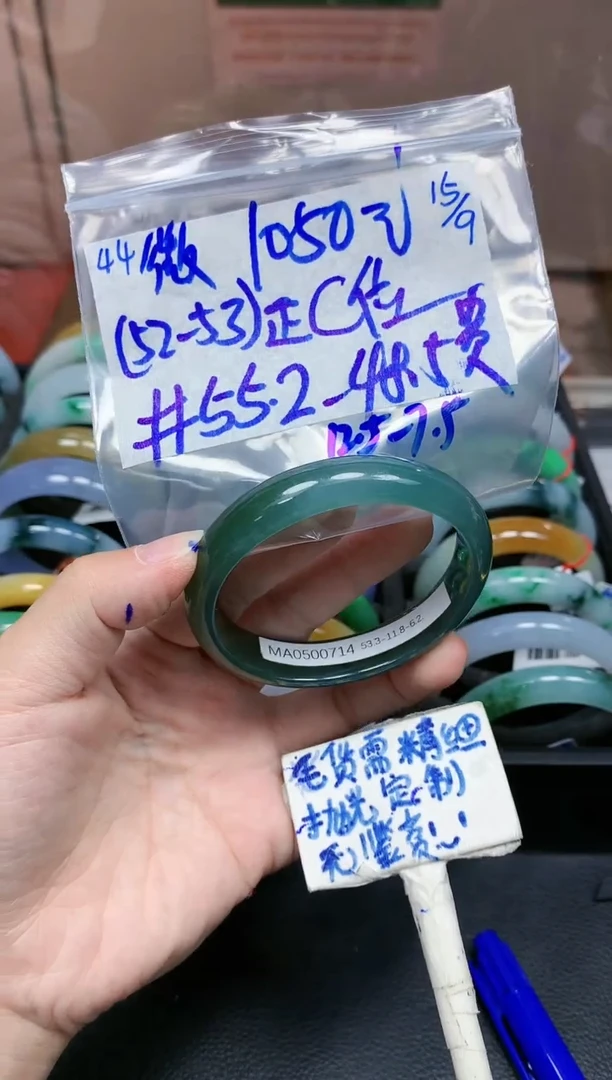 44 微 1050元 15/9
(52-53)正C位
#55.2-48.5贵
12.5-7.5
MA0500714 53.3-11.8-6.2
毛货需精细
抛光,定制
无鉴赏!